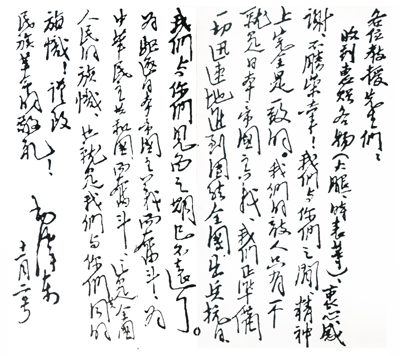 各位教授先生们：
收到惠赐各物（火腿時表等）、衷心感
谢，不勝荣幸！我们与你们之间，精神
上完全是一致的。我们的敌人只有一个
就是日本帝国主义，我们正準備
一切迅速地進到团结全国出兵抗日
我们与你们见面之期已不遠了。
为驱逐日本帝国主义而奋斗，为
中華民主共和国而奋斗，这是全国
人民的旗幟，也就是我们与你们同的
旗幟！谨致
民族革命的敬礼！
毛泽东
十一月二号